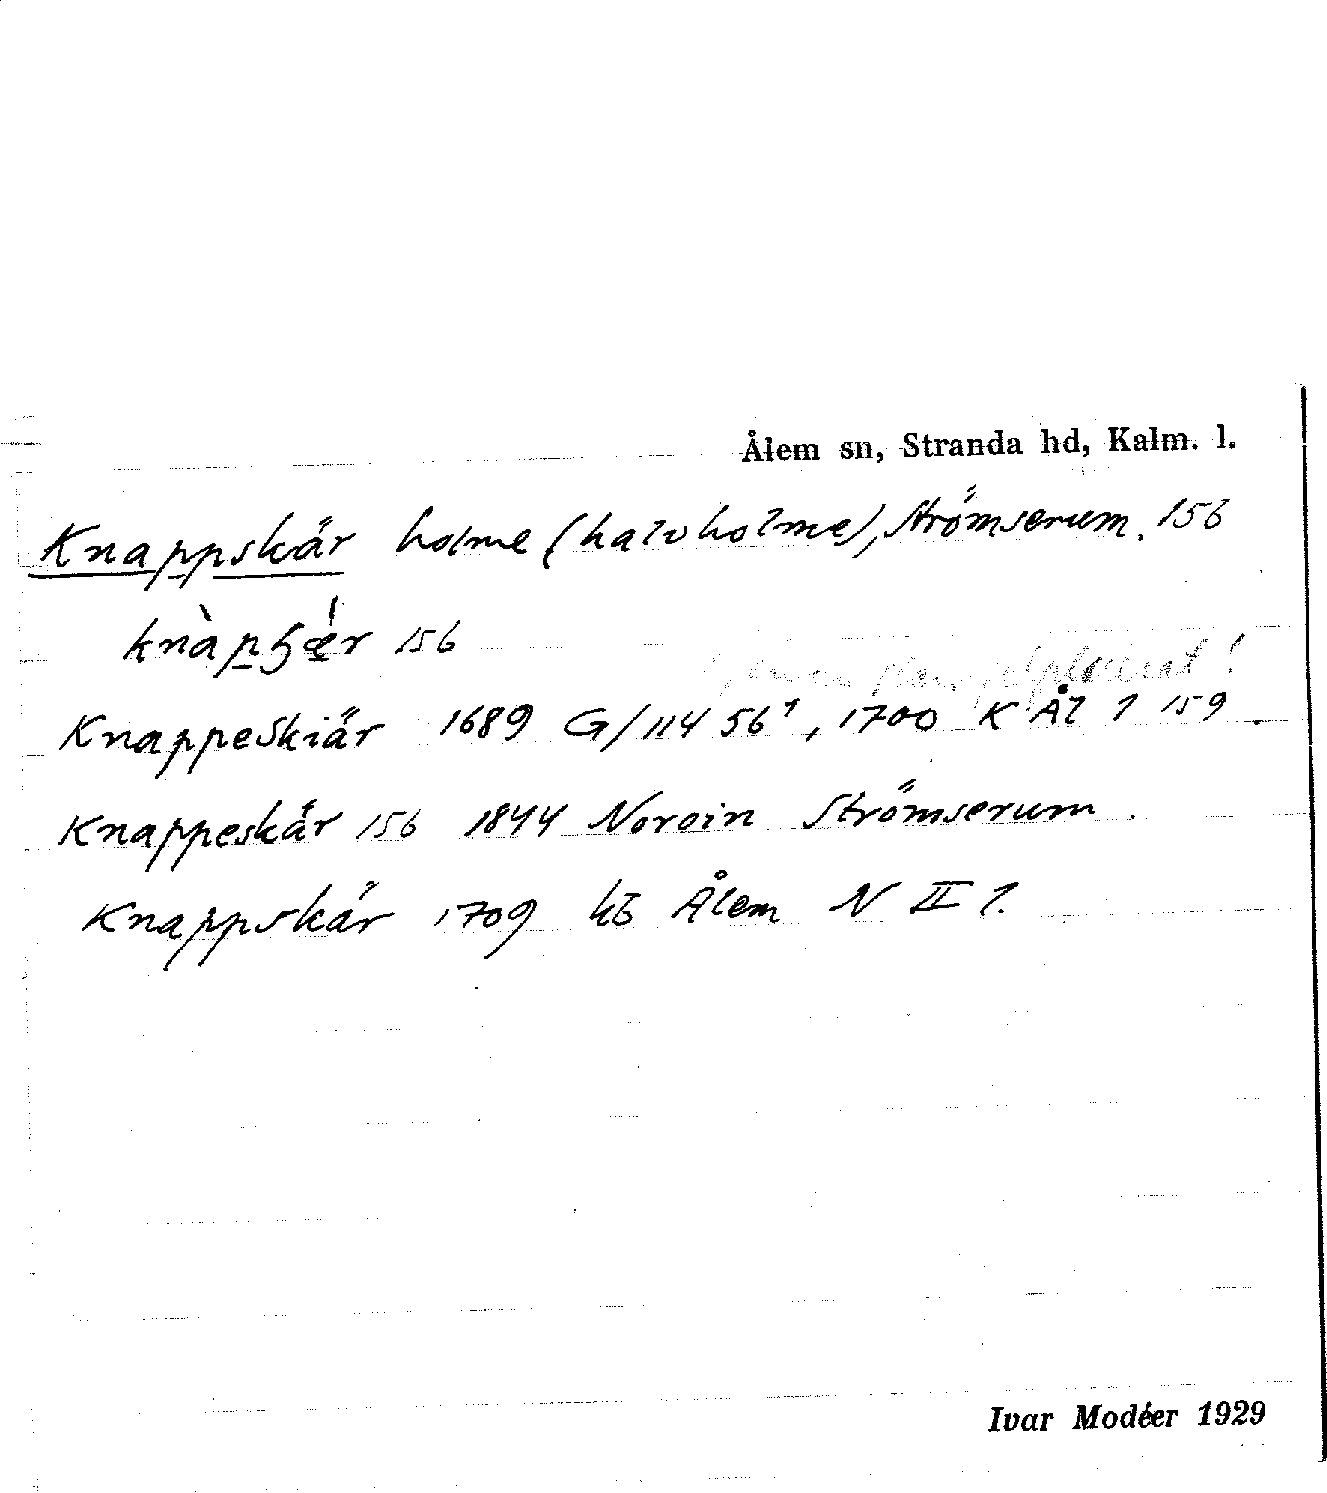 Ålem sn, Stranda hd, Kalm. l.
Knappskär holme (halvholme), Strömserum. 156
knàpɧǽr 156
Knappeskiär 1689 G/114 56¹, 1700 K Ål 1 159
Knappeskär 156 1844 Strömserum
Knappskär 1709 kb Ålem N II 1.
Ivar Modéer 1929